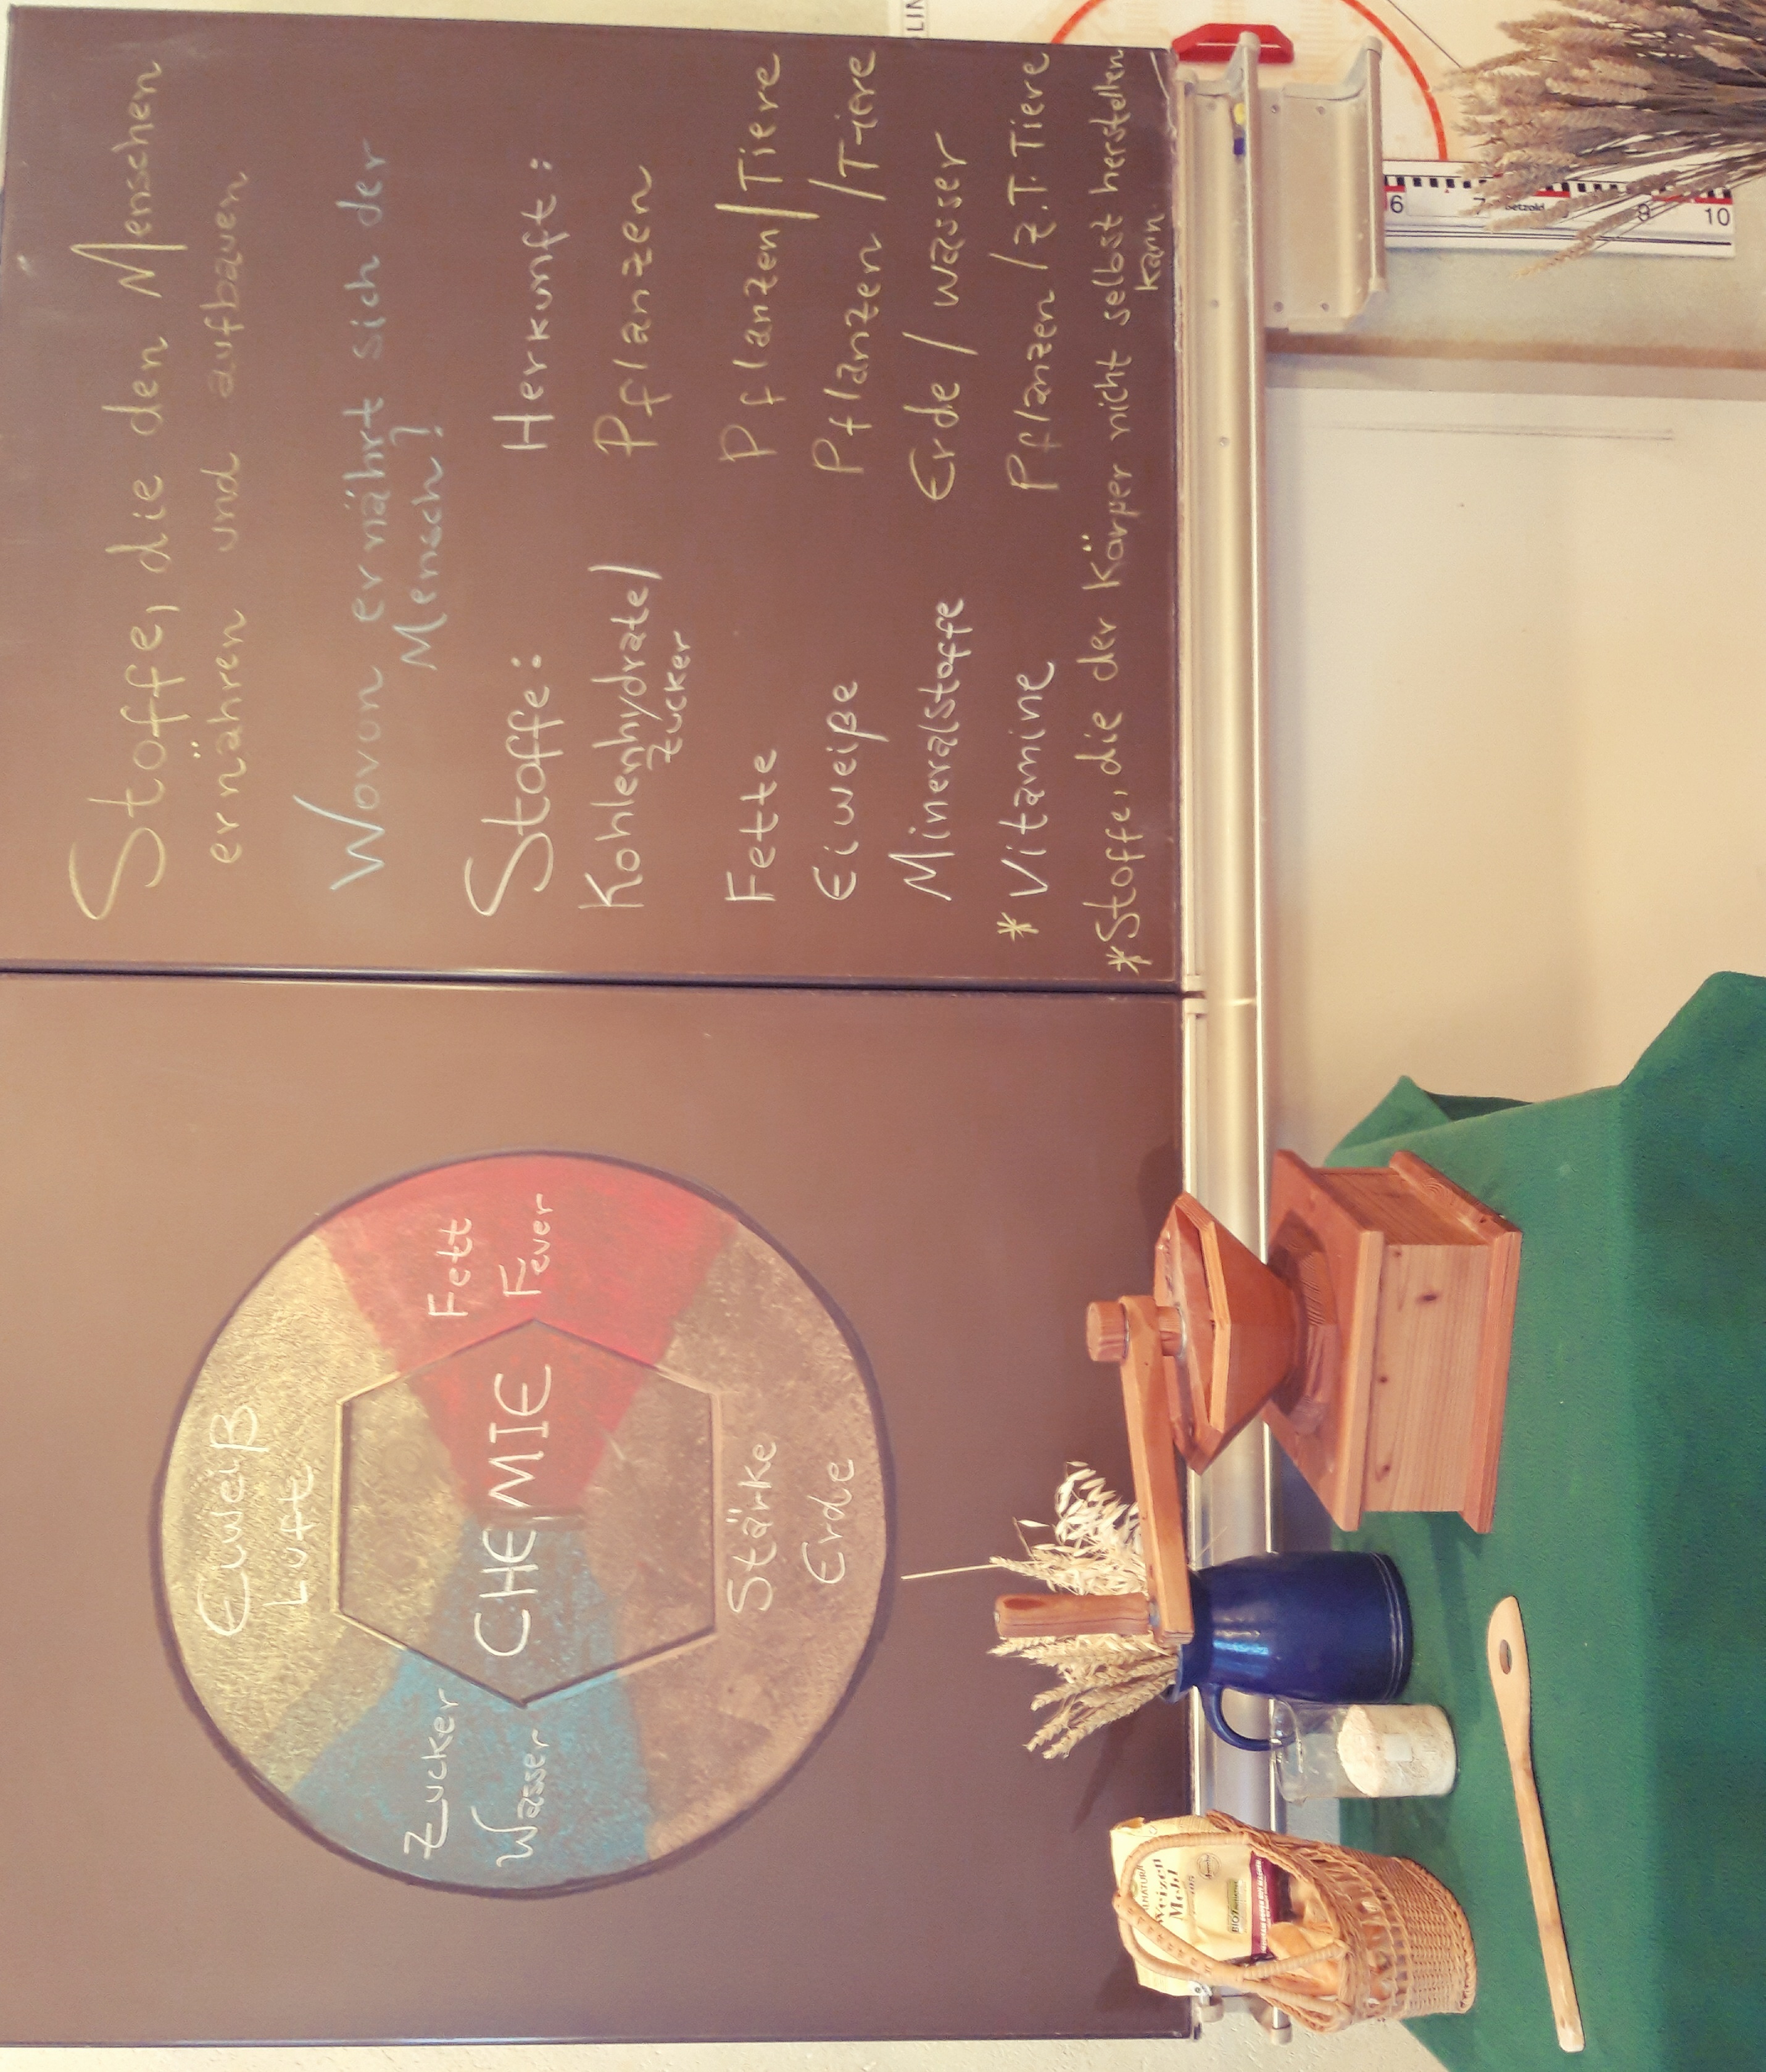 Eiweiß
Luft
Zucker
Wasser
CHEMIE
Fett
Feuer
Stärke
Erde
Stoffe, die den Menschen
ernähren und aufbauen
Wovon ernährt sich der
Mensch?
Stoffe: Herkunft:
Kohlenhydrate/ Pflanzen
Zucker
Fette Pflanzen/Tiere
Eiweiße Pflanzen/Tiere
Mineralstoffe Erde/Wasser
*Vitamine Pflanzen/z.T. Tiere
*Stoffe, die der Körper nicht selbst herstellen
kann.
Weizen
Mehl
6 7 9 10